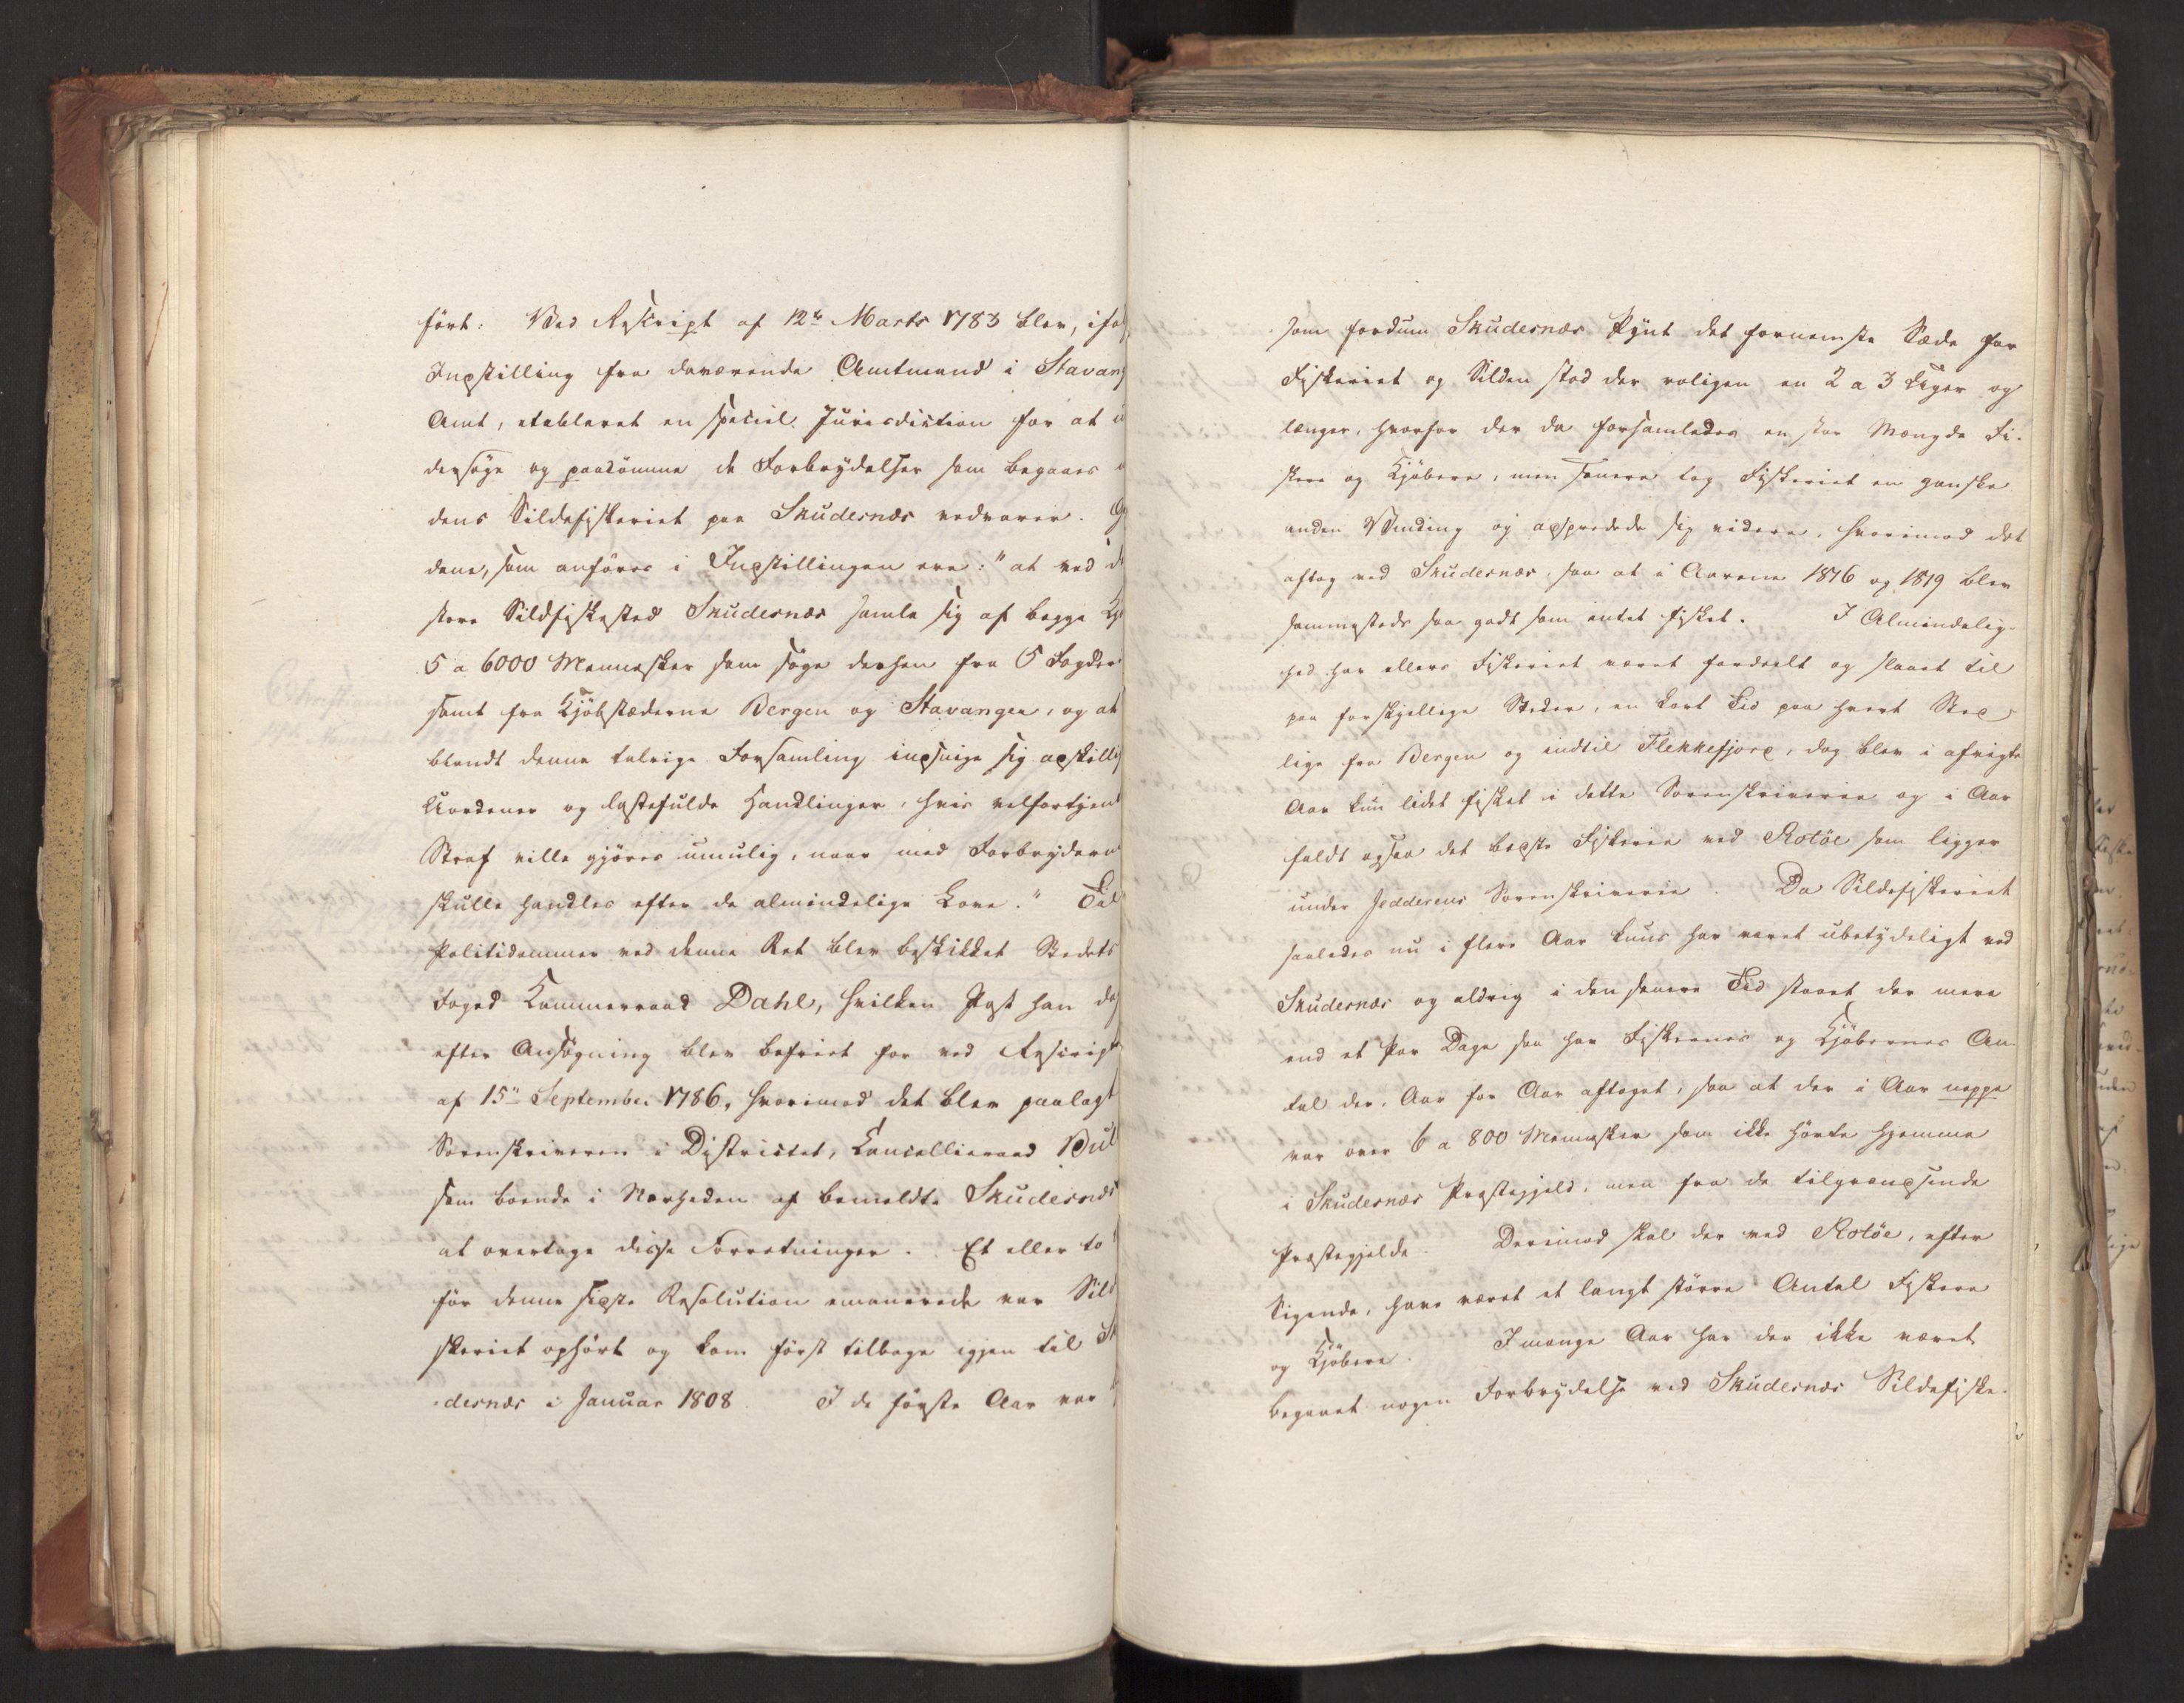 ført: Ved Rescript af 12te Marts 1783 blev, iføl
Indstilling fra daværende Amtmand i Stavang
Amt, etableret en speciel Jurisdiction for at u
dersøge og paadømme de Forbrydelser som begaaes i
dens Sildefiskeriet paa Skudesnæs vedvarer. G
dene, som anføres i Indstillingen ere: "at ved d
store Sildfiskested Skudesnæs samle sig af begge Kjø
5 a 6000 Mennesker som søge derhen fra 5 Fogder
samt fra Kjøbstæderne Bergen og Stavanger, og at
blandt denne talrige Forsamling indsnige sig adskilli
Uordener og lastefulde Handlinger, hvis velfortjent
Straf ville gjøres umulig, naar med Forbrydern
skulle handles efter de almindelige Love." Til
Politidommer ved denne Ret blev beskikket Stedets
Foged Kammerraad Dahl, hvilken Post han dog
efter Ansøgning blev befriet for ved Rescript
af 15de September 1786, hvorimod det blev paalagt
Sorenskriveren i Districtet, Cancellieraad Bul
som boende i Nærheden af bemeldte Skudesnæs
at overtage disse Forretninger. Et eller to
før denne sidste Resolution emanerede var Sild
skeriet ophørt og kom først tilbage igjen til Sk
desnæs i Januar 1808. I de første Aar var
som fordum Skudesnæs Pynt det fornemste Sæde for
Fiskeriet og Silden stod der roligen en 2 a 3 Uger og
længer, hvorfor der da forsamledes en stor Mængde Fi-
skere og Kjøbere, men senere tog Fiskeriet en ganske
anden Vending og adspredede sig videre, hvorimod det
aftog ved Skudesnæs, saa at i Aarene 1816 og 1819 blev
sammesteds saa godt som intet fisket. I Almindelig-
hed har ellers Fiskeriet været fordeelt og slaaet til
paa forskjellige Steder, en kort Tid paa hvert Sted
lige fra Bergen og indtil Flekkefjord, dog blev i afvigte
Aar kun lidet fisket i dette Sorenskriverie og i Aar
faldt ogsaa det bedste Fiskerie ved Rotöe som ligger
under Jedderens Sorenskriverie. Da Sildefiskeriet
saaledes nu i flere Aar kuns har været ubetydeligt ved
Skudesnæs og aldrig i den senere Tid staaet der mere
end et Par Dage saa har Fiskernes og Kjøbernes An-
tal der, Aar for Aar aftaget, saa at der i Aar neppe
var over 6 a 800 Mennesker som ikke hørte hjemme
i Skudesnæs Præstegjeld, men fra de tilgrændsende
Præstegjelde. Derimod skal der ved Rotöe, efter
Sigende, have været et langt større Antal Fiskere
og Kjøbere. I mange Aar har der ikke været
begaaet nogen Forbrydelse ved Skudesnæs Sildefiske-